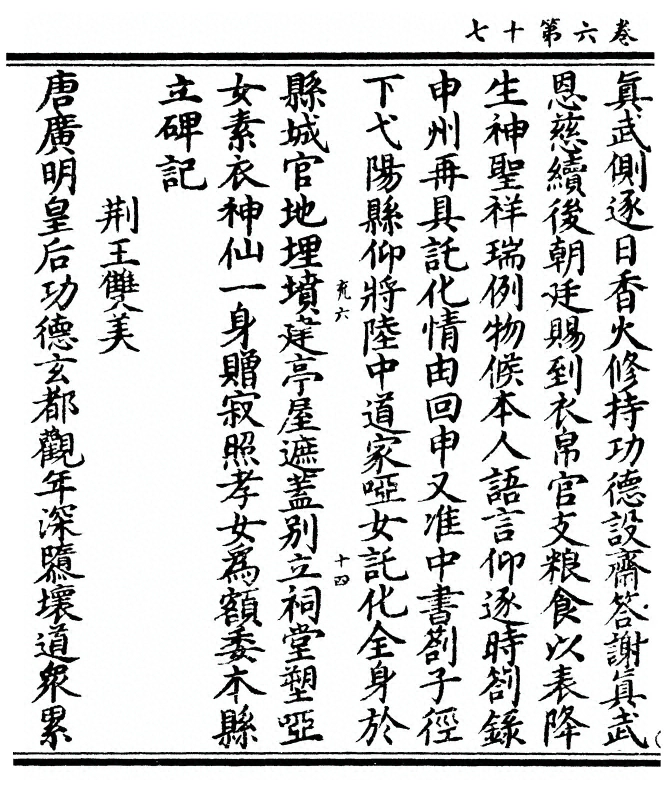 卷六第十七
真武側逐日香火修持功德設齋答謝真武
恩慈續後朝廷賜到衣帛官支粮食以表降
生神聖祥瑞例物候本人語言仰逐時劄錄
申州再具託化情由回申又准中書劄子徑
下弋陽縣仰將陸中道家啞女託化全身於
充六
十四
縣城官地埋墳建亭屋遮蓋别立祠堂塑啞
女素衣神仙一身贈寂照孝女爲額委本縣
立碑記
荆王雙美
唐廣明皇后功德玄都觀年深隳壞道衆累